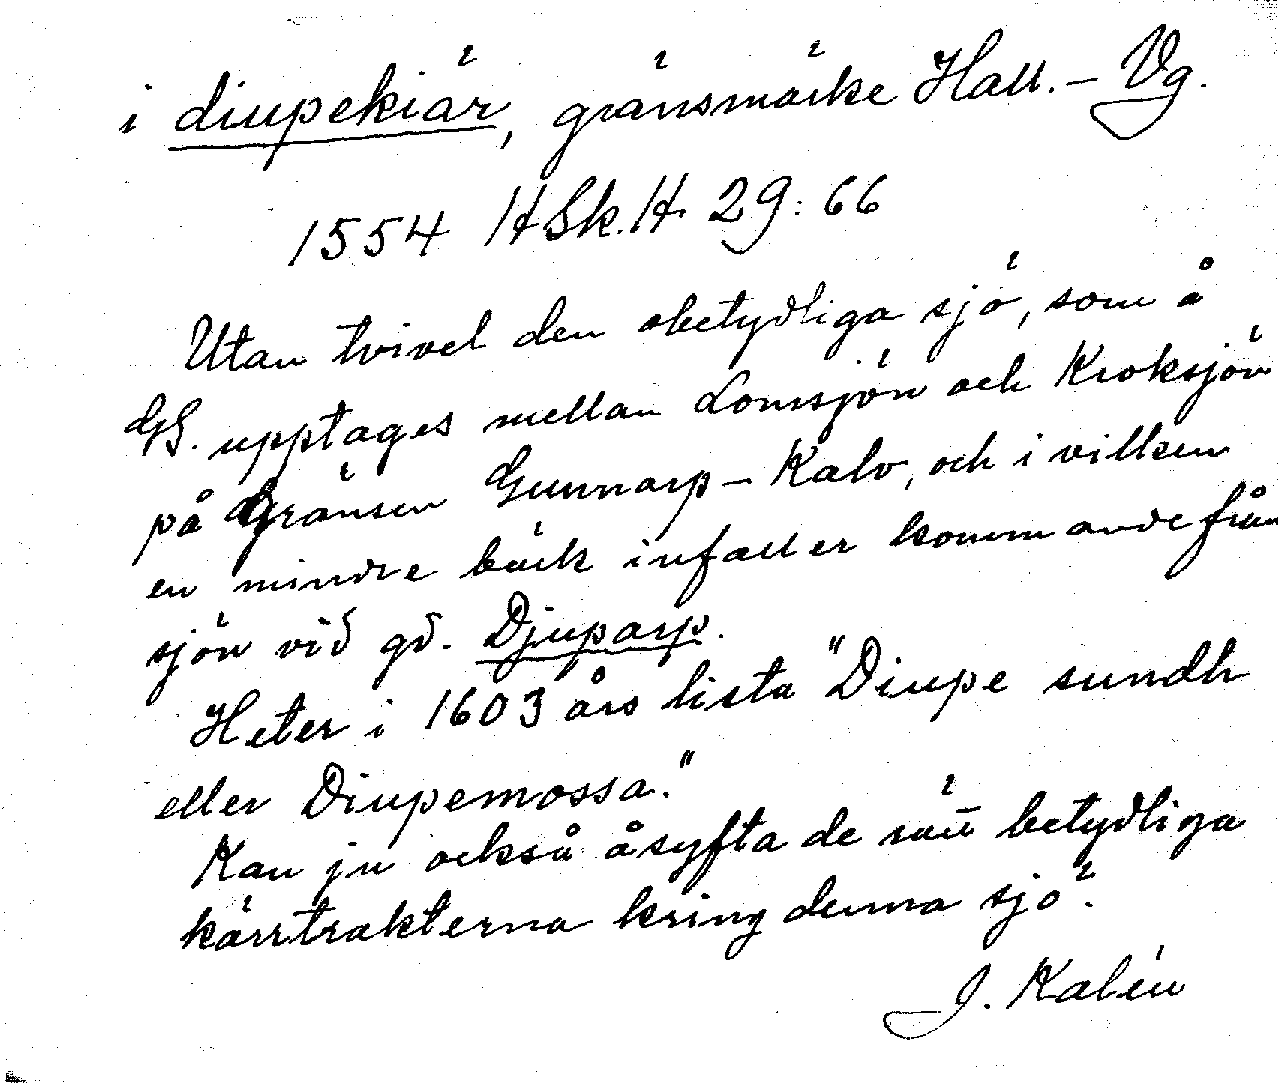 i diupekiär, gränsmärke Hall. – Vg.
1554 HSk.H. 29:66
Utan tvivel den obetydliga sjö, som å
GS. upptages mellan Lomsjön och Kroksjön
på Gränsen Gunnarp – Kalv, och i vilken
en mindre bäck infaller kommande från
sjön vid gd. Djuparp.
Heter i 1603 års lista "Diupe sundh
eller Diupemossa."
Kan ju också åsyfta de rätt betydliga
kärrtrakterna kring denna sjö.
J. Kalén